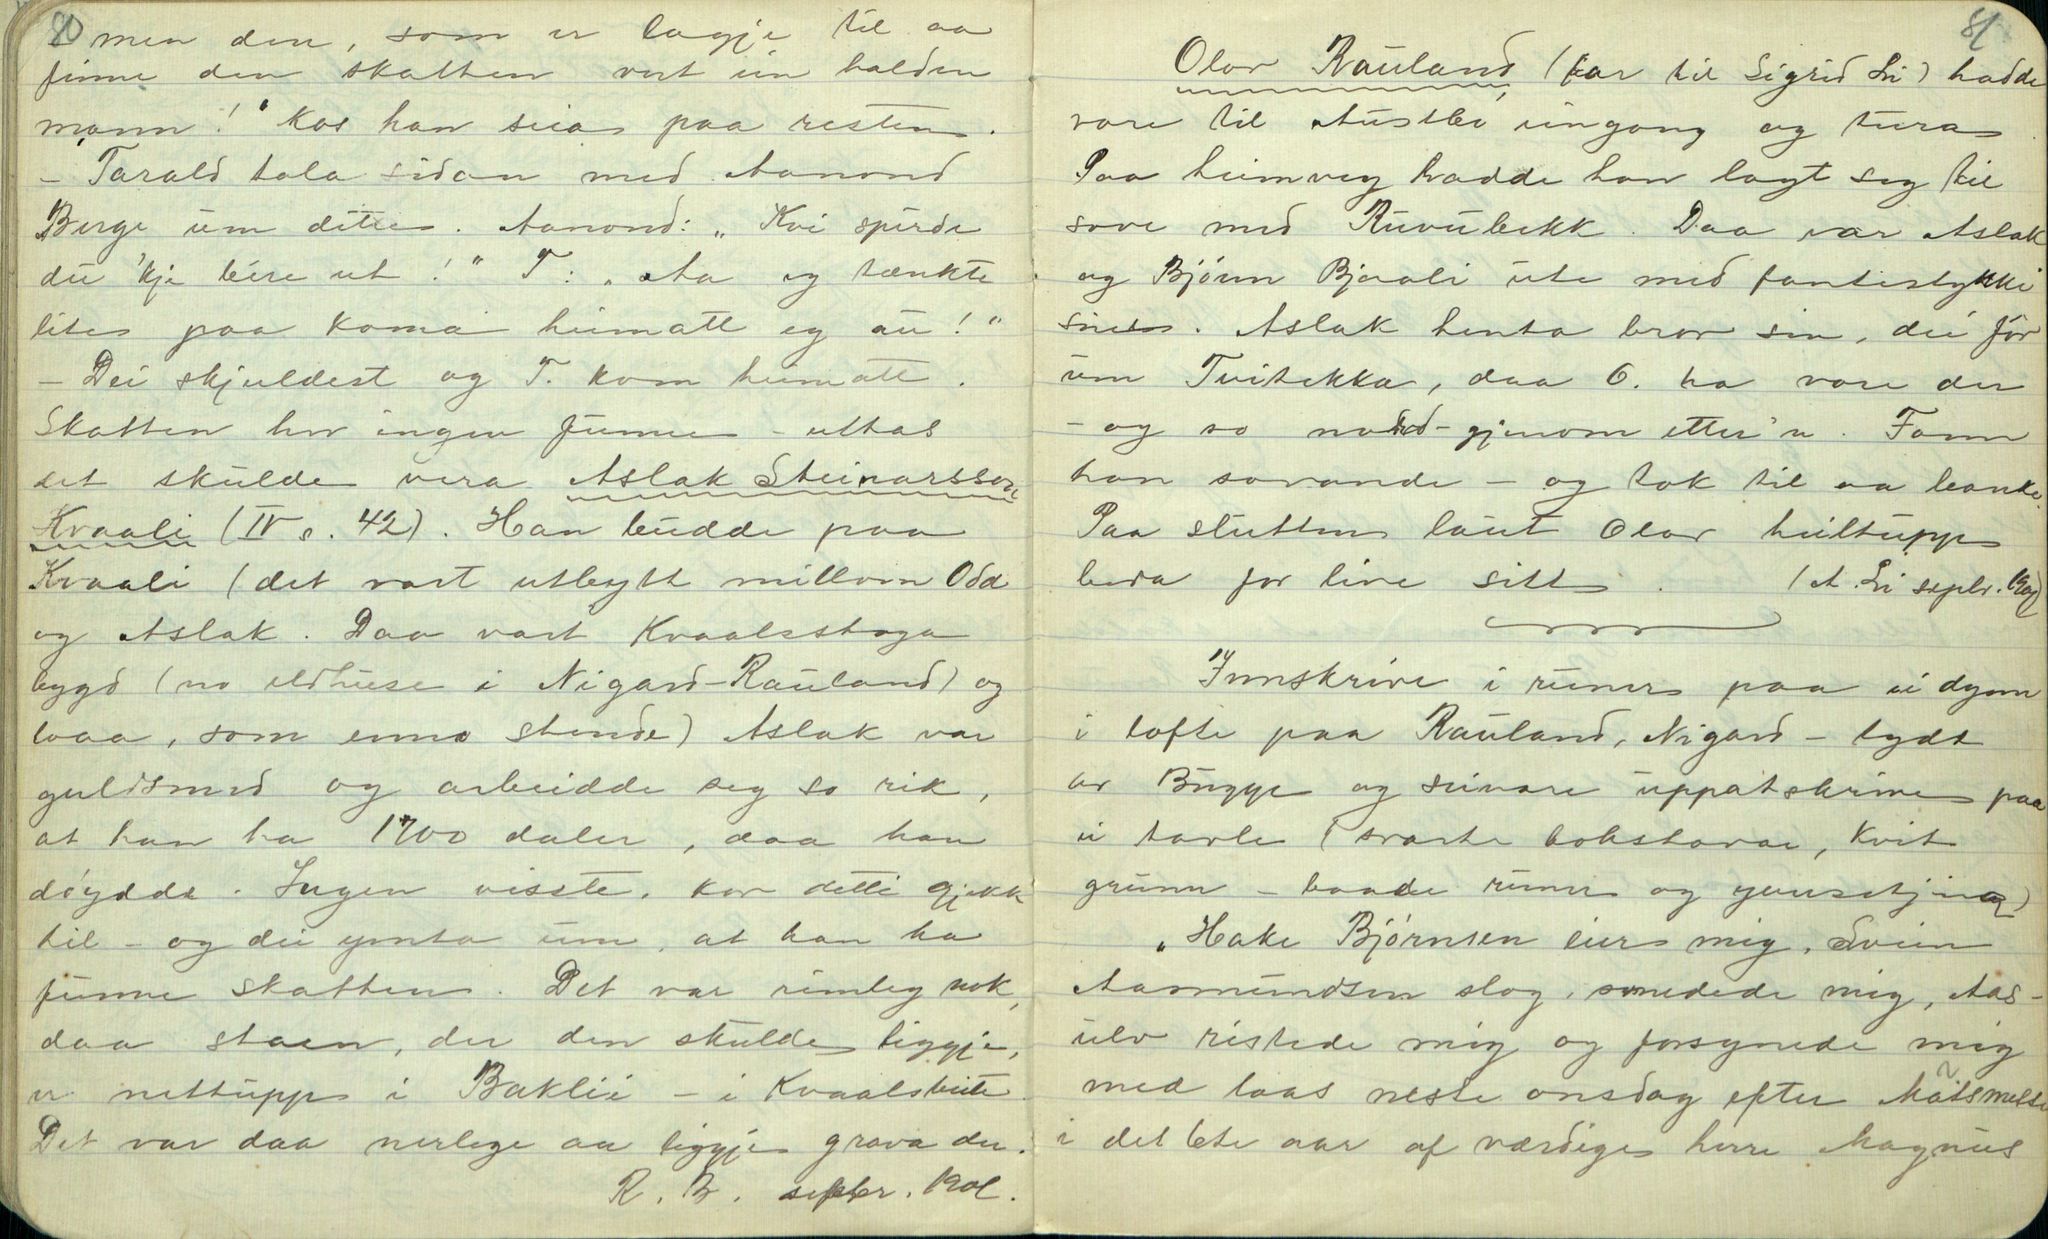 80
men den, som er lagje til aa
finne den skatten vert ein halden
mann!" Kos han seia paa resten.
- Tarald tala sidan med Aanond
Berge um dette. Aanond: "Kvi spurde
du 'kje beire ut!" T: "Aa eg tænkte
lite paa koma heimatt eg au!"
- Dei skjuldest og T. kom heimatt.
Skatten hev ingen funne - uttas
det skulde vera Aslak Steinarsson
Kvaali (IV s. 42). Han budde paa
Kvaali (det vart utbytt millom Odd
og Aslak. Daa vart Kvaalsstoga
bygd (no eldhuse i Nigard-Rauland) og
loaa, som enno stende) Aslak var
guldsmed og arbeidde seg so rik,
at han ha 1700 daler, daa han
døydde. Ingen visste, kor detti gjekk
til - og dei ymta um, at han ha
funne skatten. Det var rimleg nok,
daa staen, der den skulde liggje,
er nettupp i Baklii - i Kvaalsbeite
Det var daa nerlege aa liggje grava der.
R. B. septbr. 1901.
81
Olav Rauland (far til Sigrid Li) hadde
vore til Austbø eingong og tura
Paa heimveg hadde han lagt seg til
sove med Ruvubekk. Daa var Aslak
og Bjønn Bjaali ute med fantestykki
sine. Aslak henta bror sin, dei før
um Tvitekka, daa O. ha vore der
- og so nord-gjenom etter'n. Fann
han sovande - og tok til aa banke.
Paa slutten laut Olav heiltupp
bea for live sitt. (A. Li septr. 1901)
Innskrive i runer paa ei dynn
i lofte paa Rauland, Nigard - tydt
av Bugge og seinare uppatskrive paa
ei tavle (svarte bokstavar, kvit
grunn - baade runer og yversetjing)
"Hake Bjørnsen eier mig, Svein
Aasmundsen slog, smedede mig, Aas-
ulv ristede mig og forsynede mig
med laas neste onsdag efter Matsmesse
i det 6te aar af værdige herre Magnus